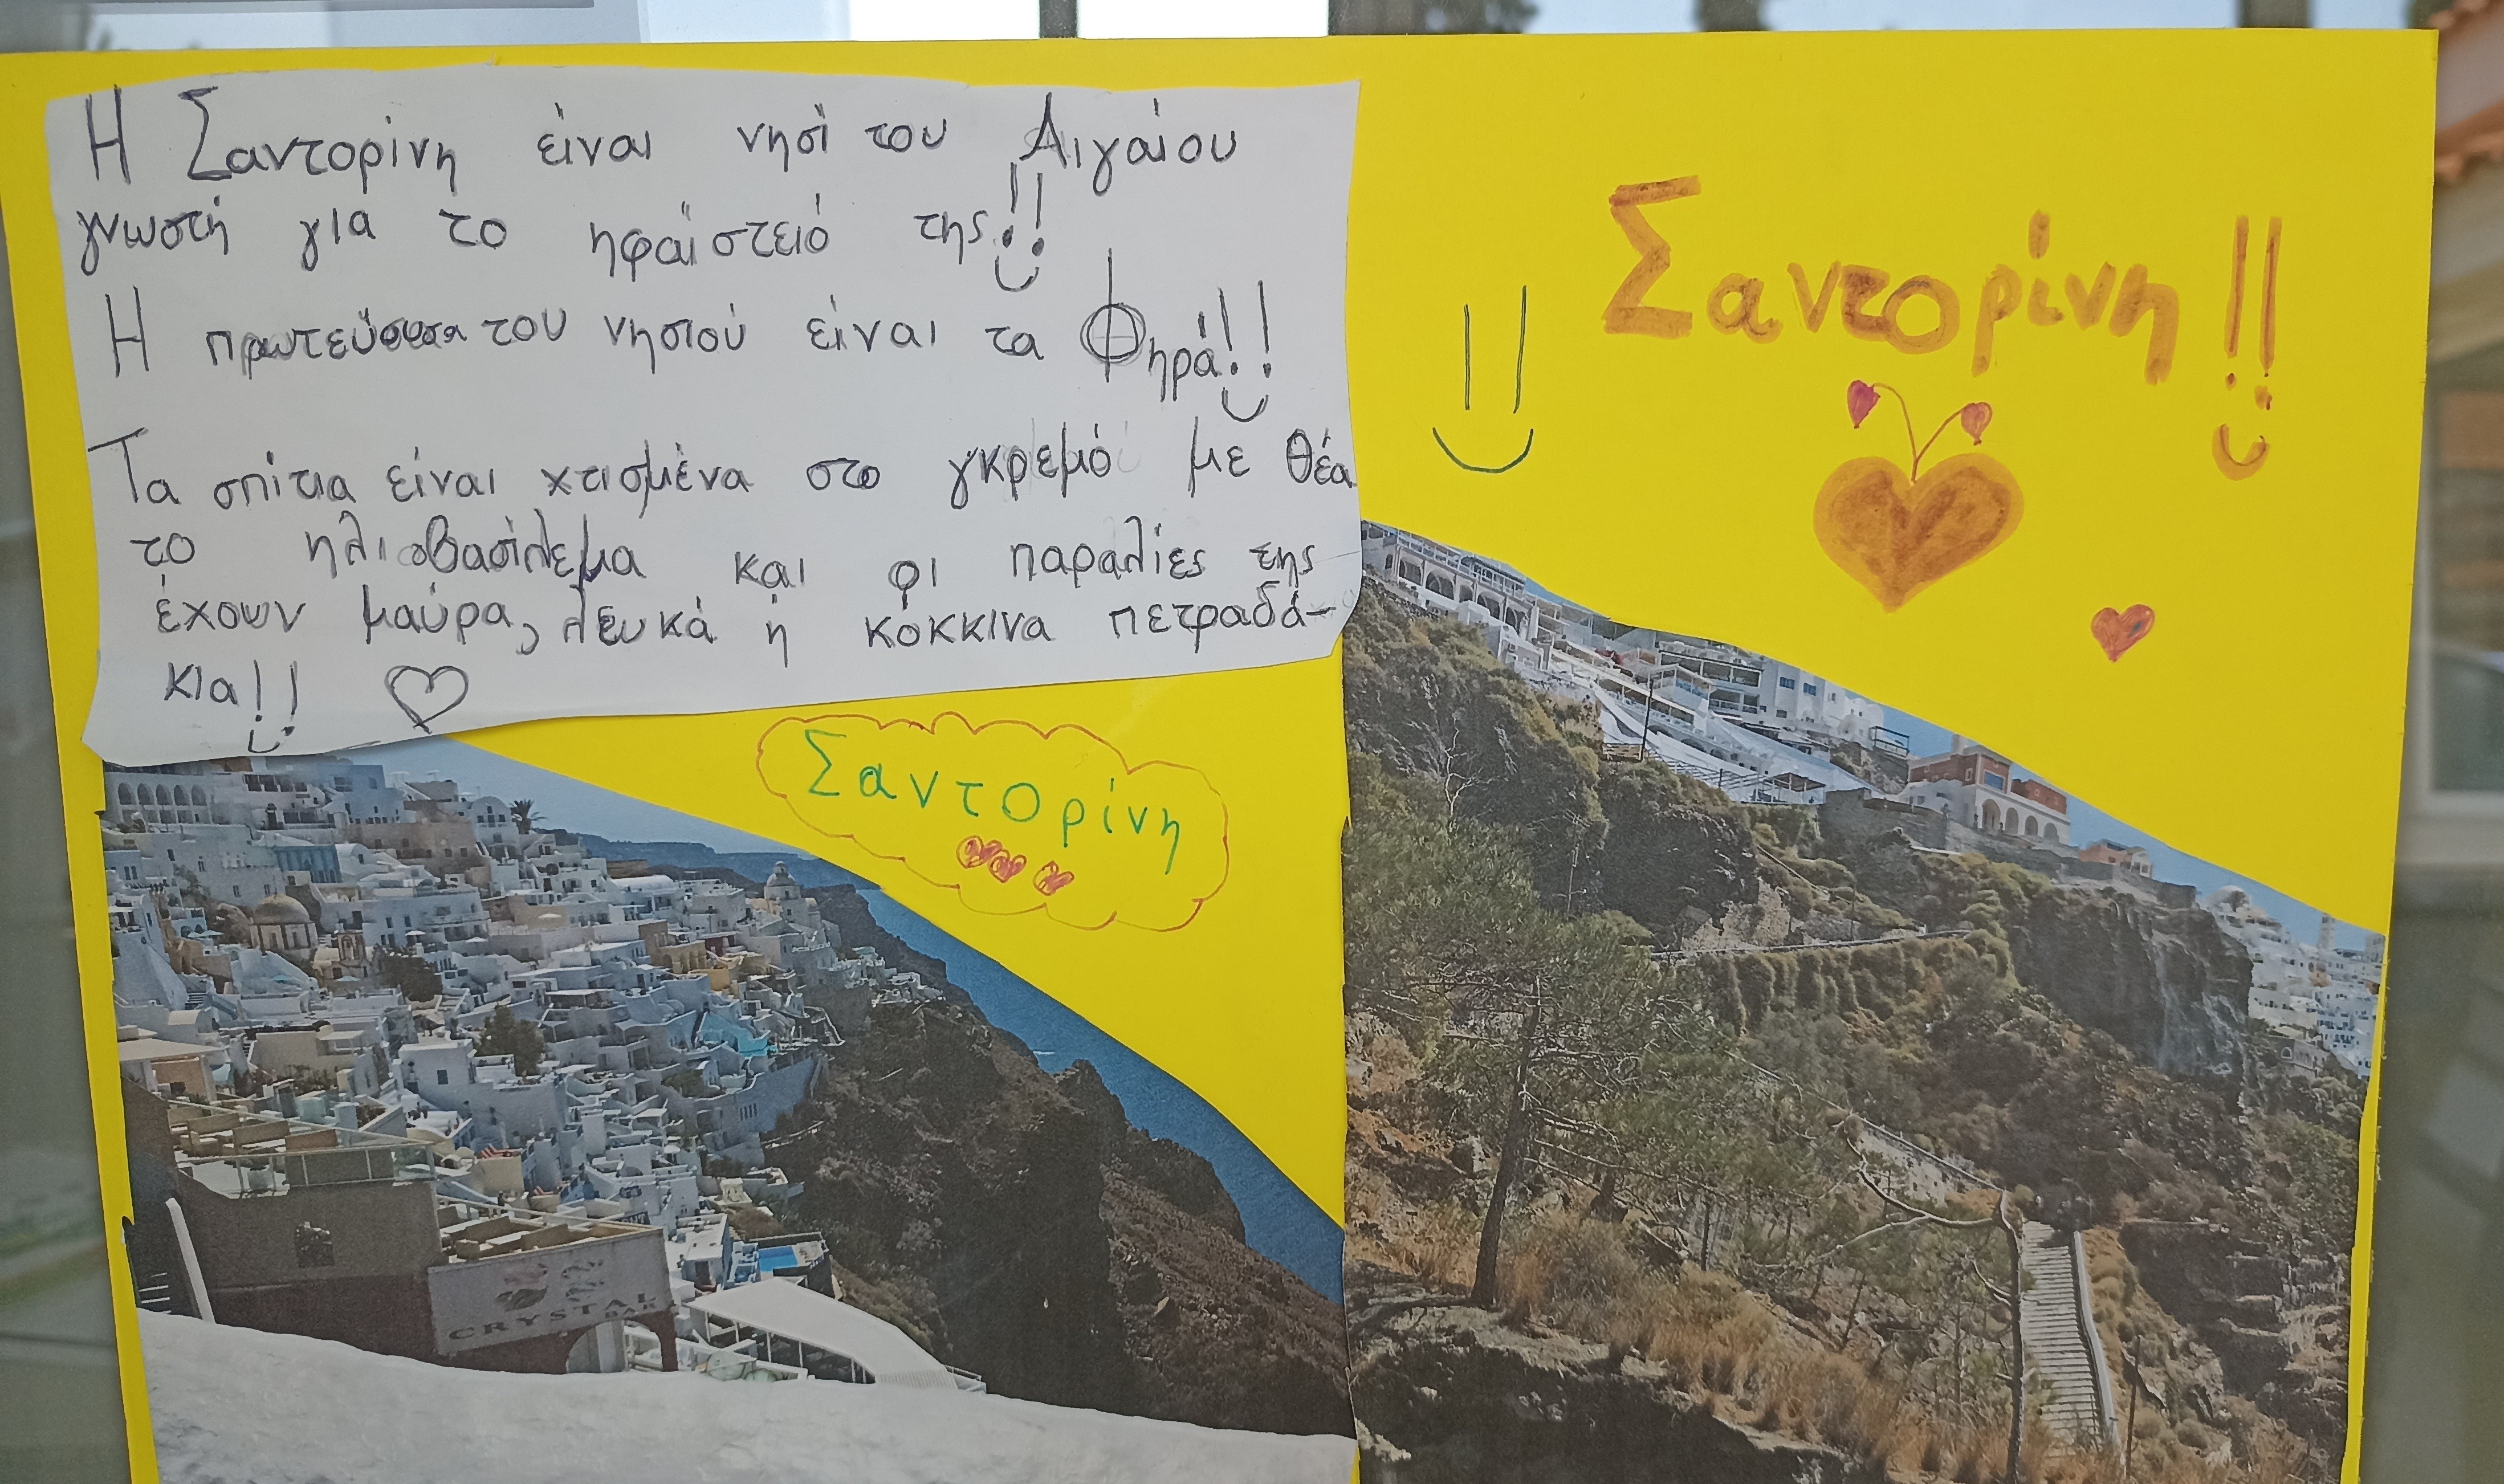 Η Σαντορίνη είναι νησί του Αιγαίου
γνωστή για το ηφαίστειό της!!
Η πρωτεύουσα του νησιού είναι τα Φηρά!!
Τα σπίτια είναι χτισμένα στο γκρεμό με θέα
το ηλιοβασίλεμα και οι παραλίες της
έχουν μαύρα, λευκά ή κόκκινα πετραδά-
κια!!
Σαντορίνη!!
Σαντορίνη
CRYSTAL
BAR